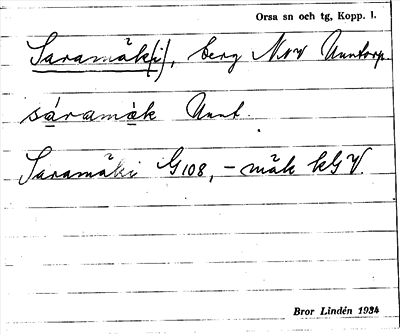 Orsa sn och tg, Kopp. l.
Saramäk(i), berg NNV Unntorp.
sáramàk Unnt.
Saramäki G108, - mäk kG V.
Bror Lindén 1934